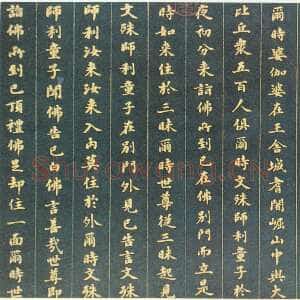 爾時婆伽婆在王舍城耆闍崛山中與大
比丘衆五百人俱爾時文殊師利童子於
夜初分来詣佛所到已在佛別門而立是
時如来住於三昧爾時世尊從三昧起見
文殊師利童子在別門外見已告言文殊
師利汝来汝来入内莫住於外爾時文殊
師利童子聞佛告已白佛言善哉世尊即
詣佛所到已頂禮佛足却住一面爾時世